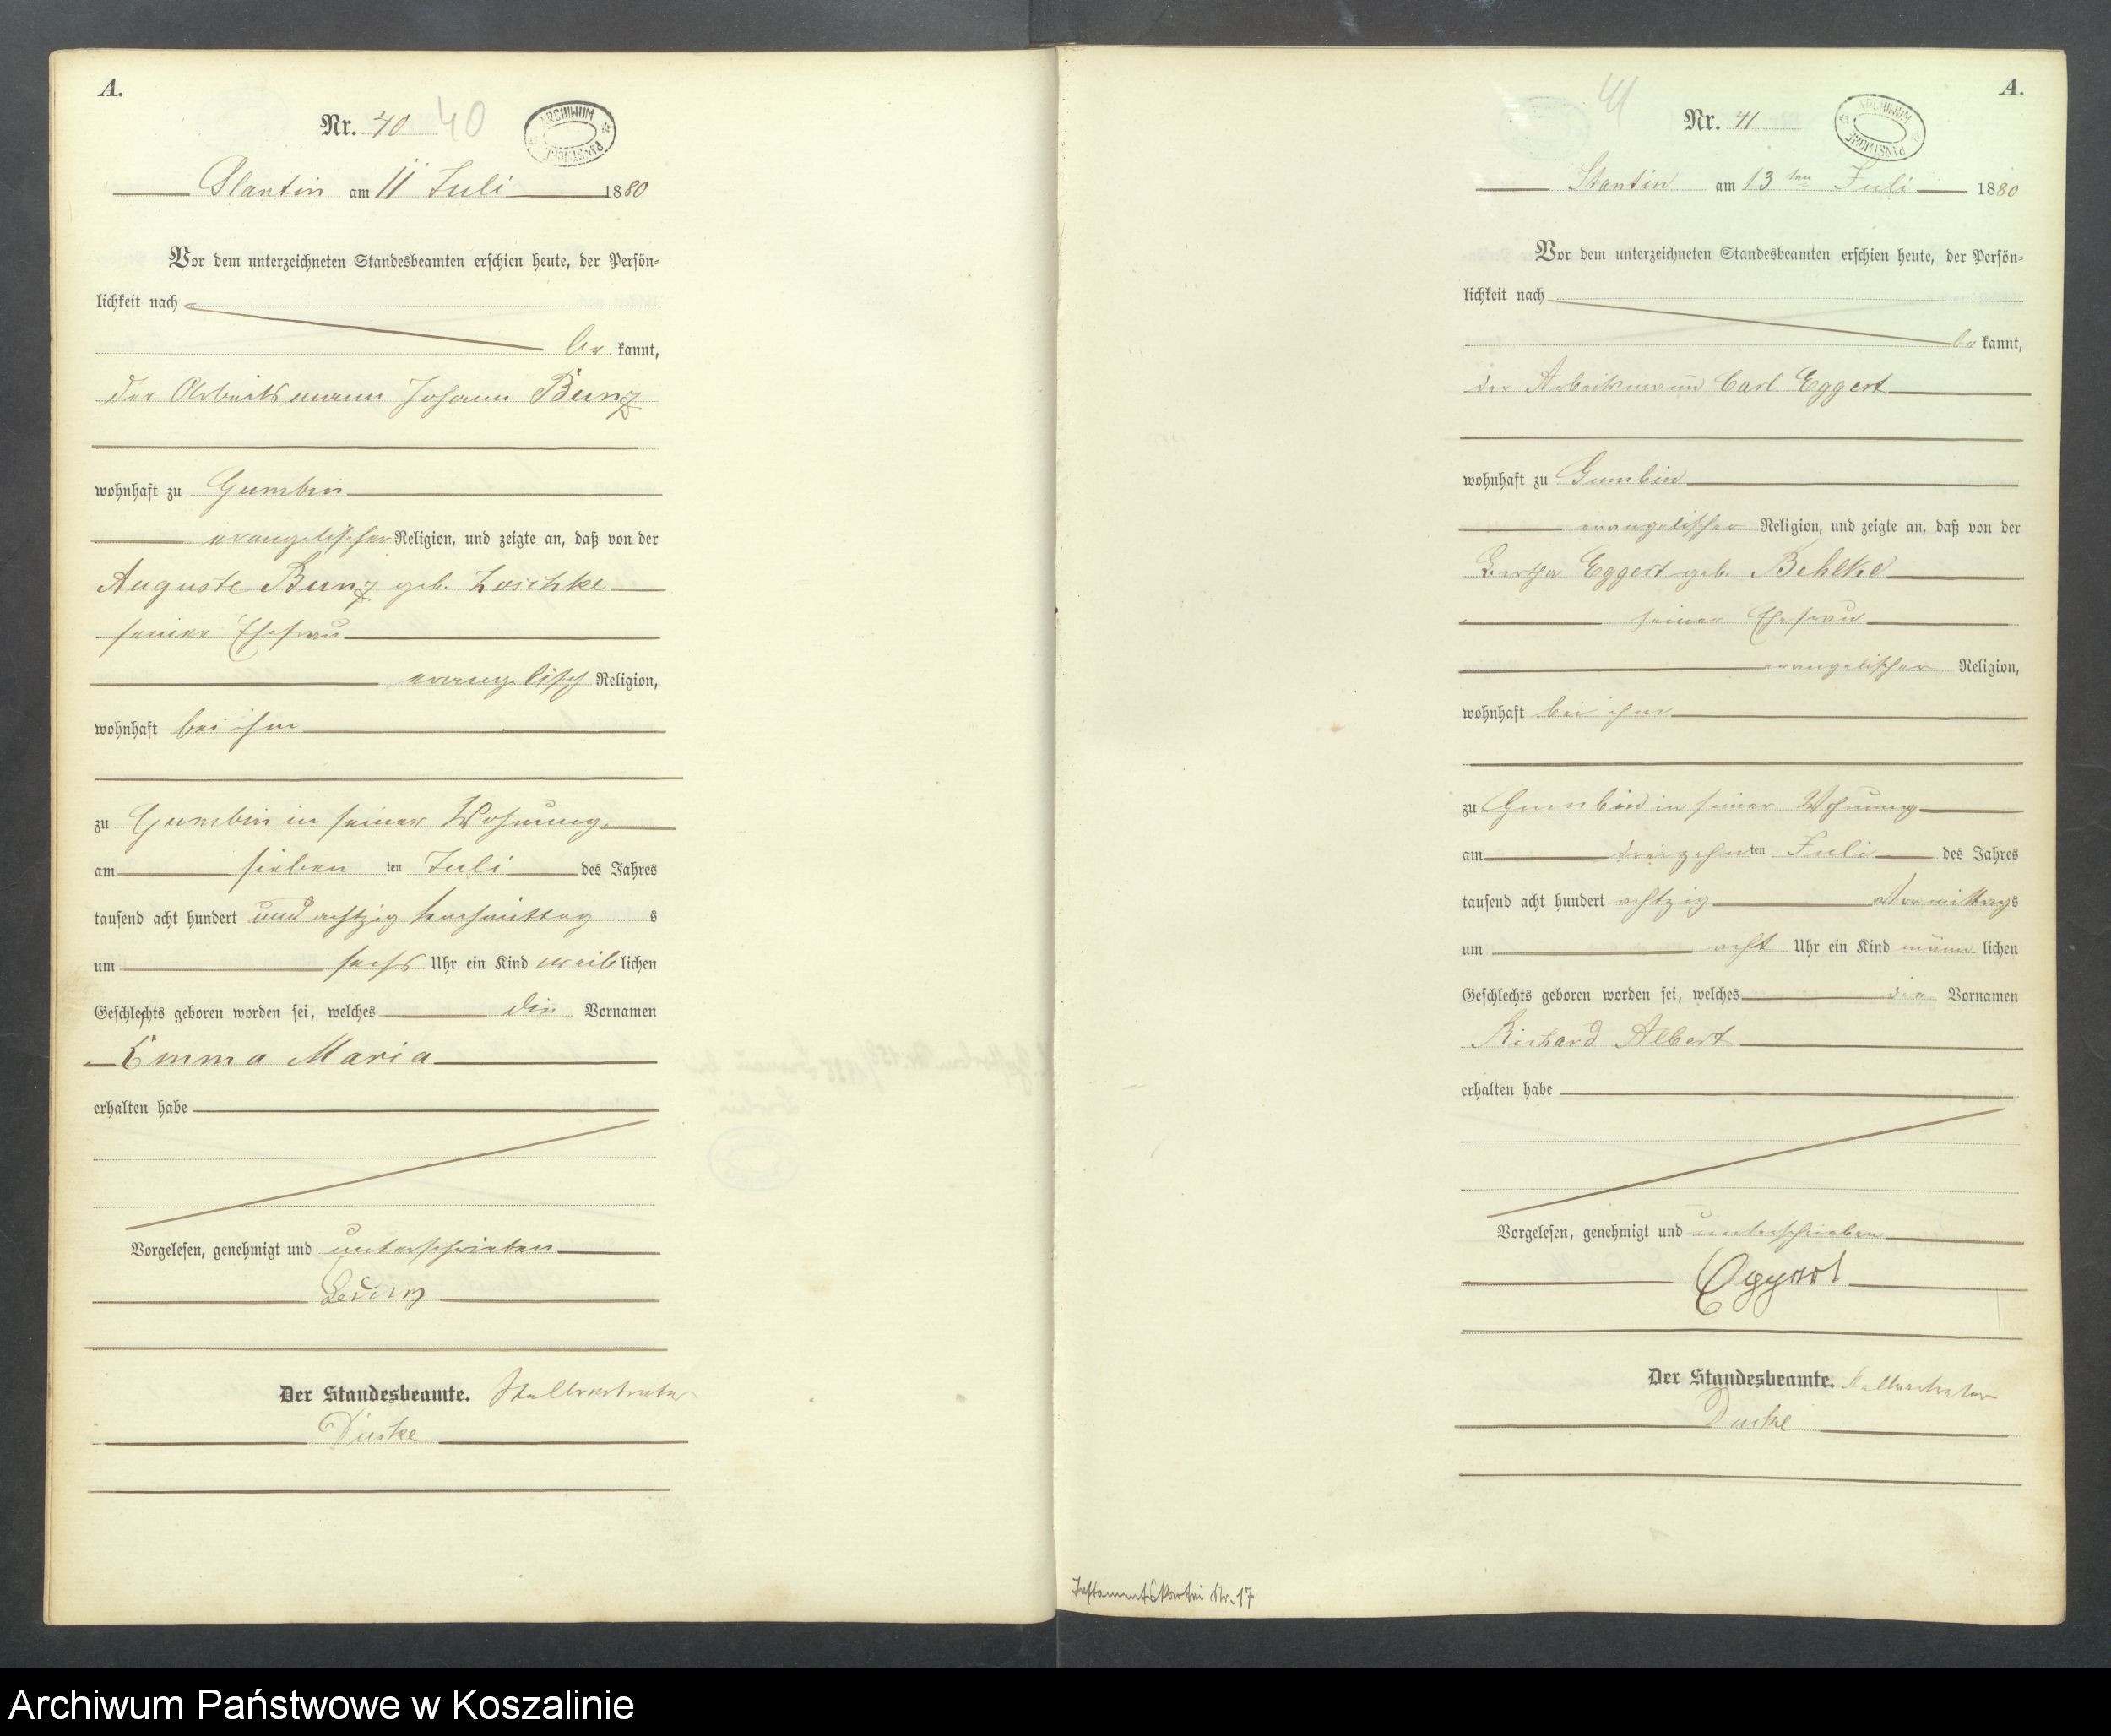 A.
Nr. 40 40
ARCHIWUM PAŃSTWOWE
Stantin am 11 Juli 1880
Vor dem unterzeichneten Standesbeamten erschien heute, der Persön-
lichkeit nach
be kannt,
der Arbeitsmann Johann Bunz
wohnhaft zu Gumbin
evangelischer Religion, und zeigte an, daß von der
Auguste Bunz geb. Zoschke
seiner Ehefrau
evangelisch Religion,
wohnhaft bei ihm
zu Gumbin in seiner Wohnung
am sieben ten Juli des Jahres
tausend acht hundert und achtzig Nachmittag s
um sechs Uhr ein Kind weib lichen
Geschlechts geboren worden sei, welches die Vornamen
Emma Maria
erhalten habe
Vorgelesen, genehmigt und unterschrieben
Der Standesbeamte. Stellvertreter
Duske
A.
41
Nr. 41
ARCHIWUM PAŃSTWOWE
Stantin am 13 ten Juli 1880
Vor dem unterzeichneten Standesbeamten erschien heute, der Persön-
lichkeit nach
be kannt,
der Arbeitsmann Carl Eggert
wohnhaft zu Gumbin
evangelischer Religion, und zeigte an, daß von der
Bertha Eggert geb. Behlke
seiner Ehefrau
evangelischer Religion,
wohnhaft bei ihm
zu Gumbin in seiner Wohnung
am dreizehn ten Juli des Jahres
tausend acht hundert achtzig Vormittags
um acht Uhr ein Kind männ lichen
Geschlechts geboren worden sei, welches die Vornamen
Richard Albert
erhalten habe
Vorgelesen, genehmigt und unterschrieben
Eggert
Der Standesbeamte. Stellvertreter
Duske
Testamentskartei Nr. 17
Archiwum Państwowe w Koszalinie